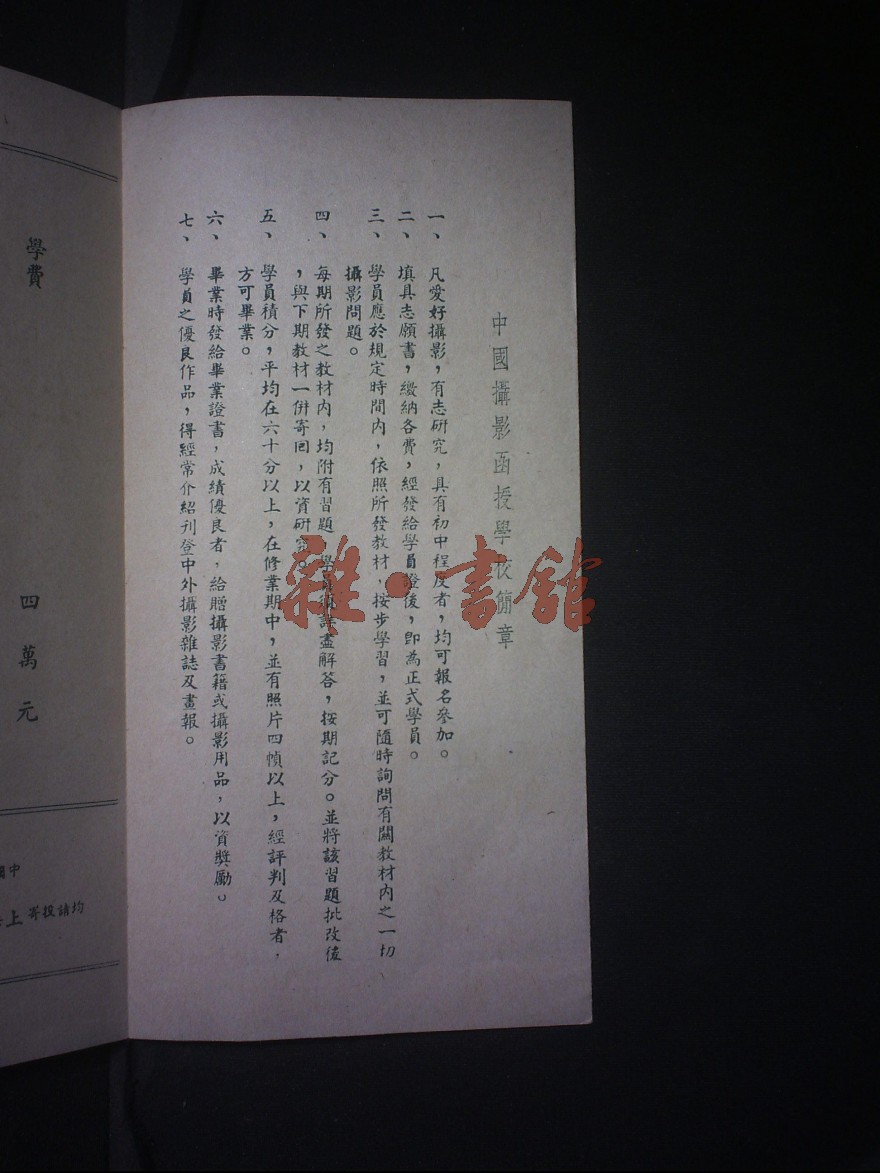 中國攝影函授學校簡章
一、凡愛好攝影，有志研究，具有初中程度者，均可報名參加。
二、填具志願書，繳納各費，經發給學員證後，即為正式學員。
三、學員應於規定時間內，依照所發教材，按步學習，並可隨時詢問有關教材內之一切
攝影問題。
四、每期所發之教材內，均附有習題，學員須詳盡解答，按期記分。並將該習題批改後
，與下期教材一併寄回，以資研究。
五、學員積分，平均在六十分以上，在修業期中，並有照片四幀以上，經評判及格者，
方可畢業。
六、畢業時發給畢業證書，成績優良者，給贈攝影書籍或攝影用品，以資獎勵。
七、學員之優良作品，得經常介紹刊登中外攝影雜誌及畫報。
學費 四萬元
中
均請投寄上
雜·書館